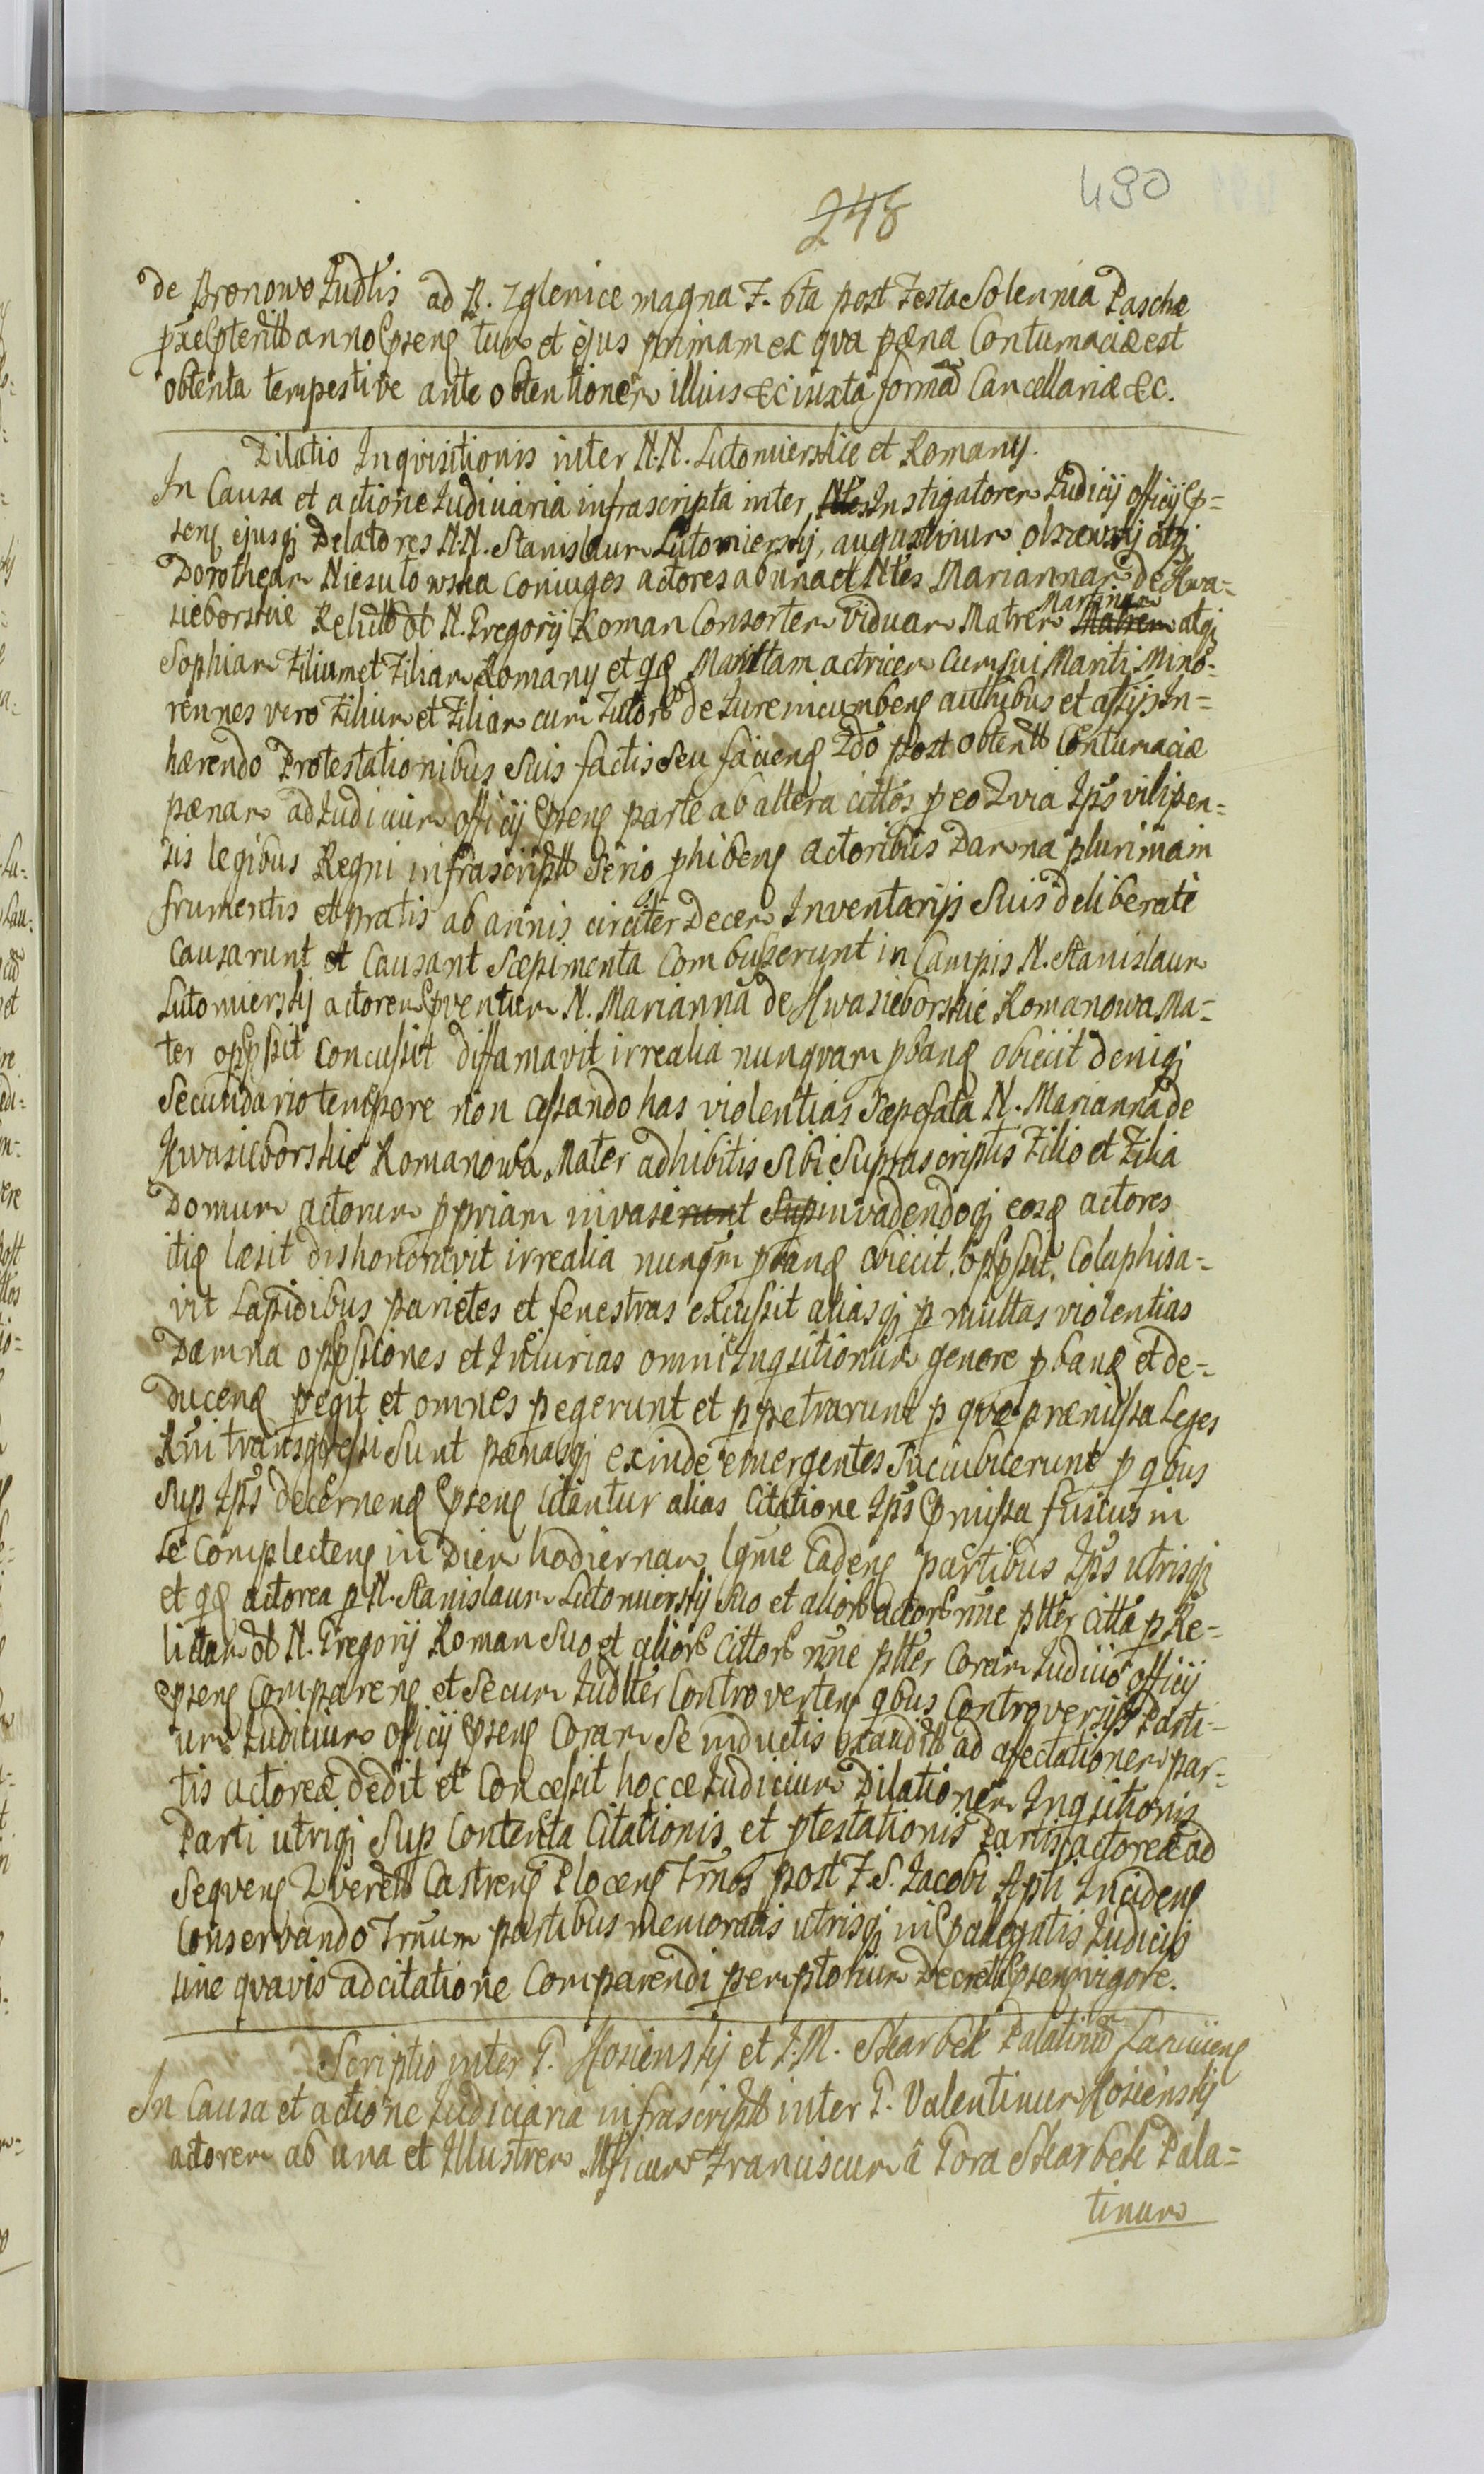 490
248
de Bronowo Judlis ad B. Zglenice magna F. 6ta post Festa Solennia Paschæ
anno tum et ejus primam ex qva pæna Contumaciæ est
obtenta tempestive ante obtentionem illius &c iuxta formã Cancellariæ &c.
Dilatio Inqvisitionis inter N.N. Lutomierskie et Romany.
In Causa et actione Judiciaria infrascripta inter Instigatorem Judicij officij
ejusq Delatores N.N. Stanislaum Lutomierskij, augustinum olszewskij atq
Dorotheam Niesulowska coniuges actores ab una et Nles Mariannam de Kwa-
sieborskie Relictã ol N. Gregorij Roman Consortem viduam Matrem Martinum atq
Sophiam Filium et Filiam Romany et qg Marittam actricem cum sui Mariti Mino-
rennes vero Filium et Filiam cum Tutorb de Jure incumbens authibus et assijs In-
hærendo Protestationibus Suis factis seu faciens 2do post obtentt Contumaciæ
pænam ad Judicium officij parte ab altera cittos p eo Qvia Ips vilipen-
sis legibus Regni infrascriptt Serio phibens actoribus Damna plurimam
frumentis et pratis ab annis circiter Decem Inventarijs Suis deliberate
causarunt et Causant Sæpimenta Combusserunt in Campis N. Stanislaum
Lutomierskij actorem N. Marianna de Kwasieborskie Romanowa Ma-
ter concussit diffamavit irrealia nunqvam pbang obiecit deniq
Secundario tempore non cessando has violentias Sæpefata N. Marianna de
Kwasieborskie Romanowa Mater adhibitis Sibi Suprascriptis Filio et Filia
Domum actorum ppriam invaserunt Sup invadendoq eosq actores
itiq læsit dishonoravit irrealia nunqm pbang obiecit, oppssit, Colaphisa-
vit Lapidibus parietes et fenestras excussit aliasq p multas violentias
Damna oppssiones et Iniurias omni Inqsitionum genere pbang et de-
duceng pegit et omnes pegerunt et ppetrarunt p qvæ præmissa Leges
Rni transgressi Sunt pænasq exinde emergentes Succubuerunt p qbus
Sup Ips decernens citantur alias Citatione Ips missa fusius in
se complectens in Diem hodiernam lgme Cadens partibus Ips utrisq
et qg actorea p N. Stanislaum Lutomierskij Suo et aliorb actorb nne plter citta p Re-
lictam ol N. Gregorij Roman Suo et aliorb Cittorb nne plter Coram Judicio officij
Comparens et Secum Judlter Controvertens qbus Controversijs Parti-
um Judicium officij Coram Se inductis exauditt ad afectationem par-
tis actoreæ dedit et Concessit hocce Judicium Dilationem Inqsitionis
Parti utriq Sup Contenta Citationis et ptestationis Partis actoreæ ad
Seqvens Castrens Plocens Trnos post F. S. Jacobi Apli Incidens
Conservando Trnum partibus memoratis utrisq in pallegatis Judicijs
sine qvavis adcitatione Comparendi pemptorium Decreti vigore.
Scriptio inter G. Kosienskij et I.M. Skarbek Palatinum
In Causa et actione Judiciaria infrascriptt inter G. Valentinum Kosienskij
actorem ab una et Illustrem Mficum Franciscum â Gora Skarbek Pala-
tinum